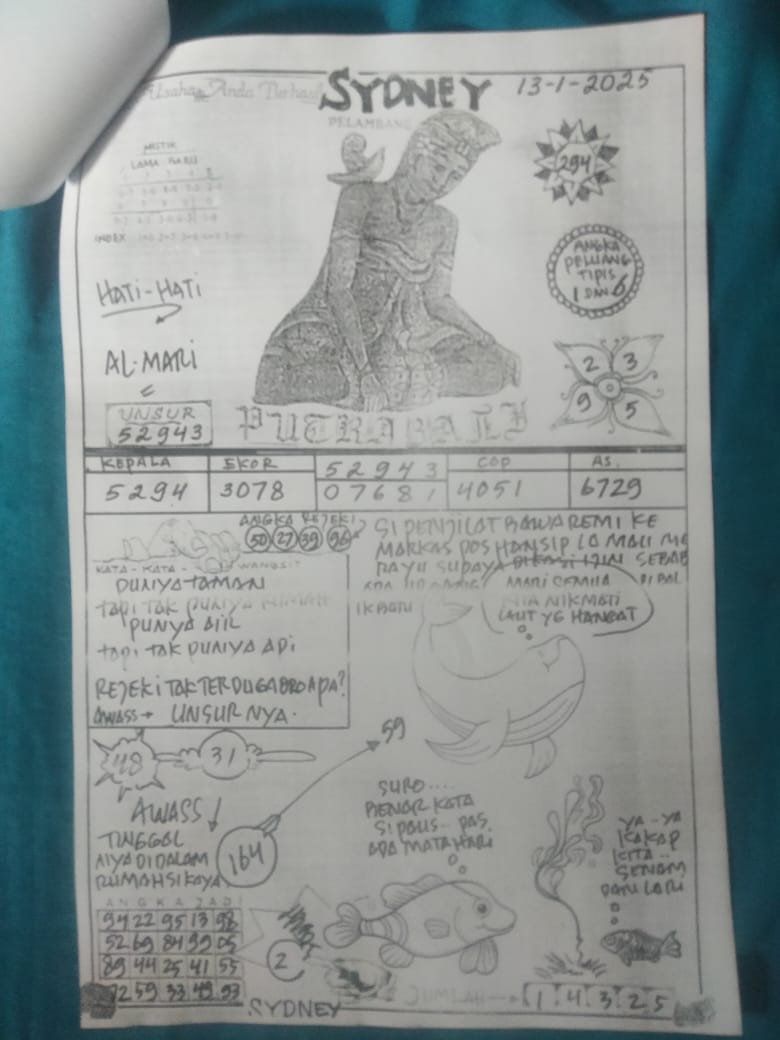 Usaha Anda Berhasil
SYDNEY
13-1-2025
PELAMBANG
MISTIK
LAMA BARU
INDEX
294
HATI-HATI
ANGKA
PELUANG
TIPIS
1 DAN 6
AL-MARI
2 3
9 5
UNSUR
52943
PUTRA BALI
KEPALA
5294
EKOR
3078
52943
07681
COP
4051
AS.
6729
ANGKA REJEKI
50 27 39 96
KATA - KATA - WANGSIT
PUNYA TAMAN
tapi tak PUNIYA RUMAH
PUNYA AIIL
tapi tak PUNIYA API
REJEKI TAK TERDUGA BRO APA?
AWASS → UNSURNYA.
SI PENJILAT BAWA REMI KE
MARKAS POS HANSIP LA MALI ME
RAYU SUPAYA DIKASI IJIN SEBAB
MARI SEMUA
KITA NIKMATI
LAUT YG HANGAT
48
31
59
AWASS
TINGGAL
NYA DIDALAM
RUMAH SIKAYA
164
SURO....
BENAR KATA
SI PAUS.. PAS.
ADA MATAHARI
YA..YA
KAKAP
KITA..
SENAM
DAN LARI
ANGKA JADI
94 22 95 13 98
52 69 84 39 05
89 44 25 41 55
72 59 33 49 93
2
SYDNEY
JUMLAH → 1 4 3 2 5